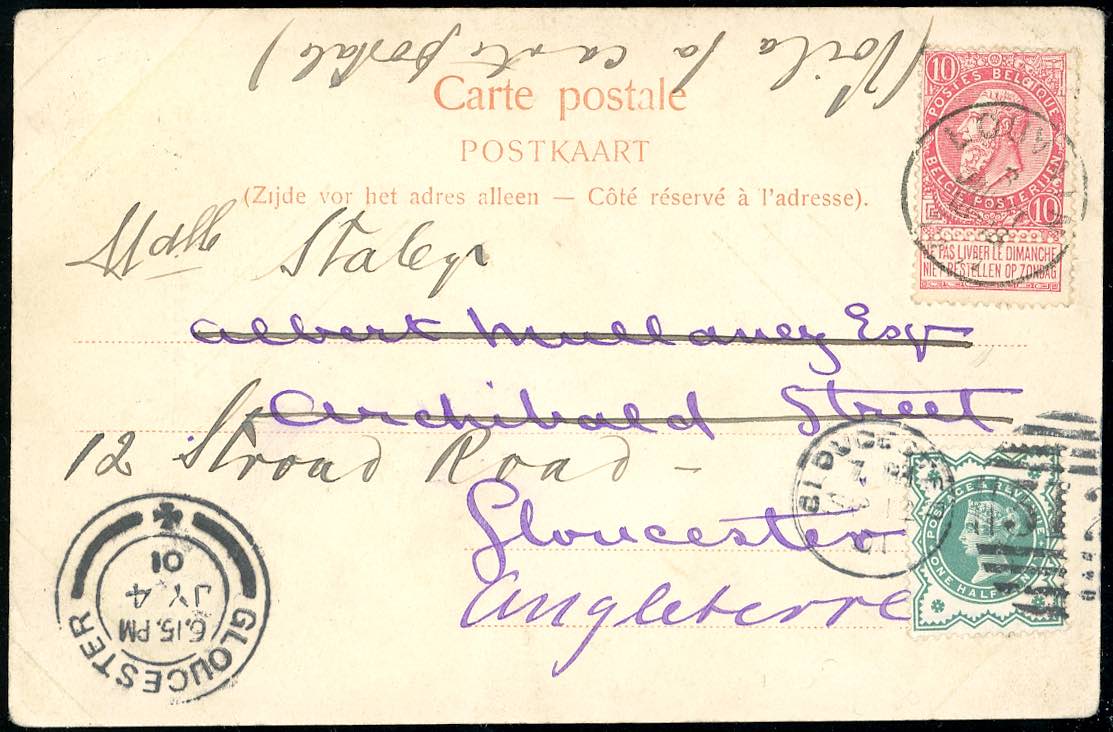 (Voila la carte postale)
Carte postale
POSTKAART
(Zijde vor het adres alleen — Côté réservé à l'adresse).
10
POSTES BELGIQUE
BELGIE POSTERIJEN
10
NE PAS LIVRER LE DIMANCHE
NIET BESTELLEN OP ZONDAG
LOUV
Mdlle
Albert Mullaney Esq
Archibald Street
12 Stroud Road -
Gloucester
Angleterre
POSTAGE & REVENUE
ONE HALFPENNY
GLOUCESTER
6.15. PM
JY 4
01